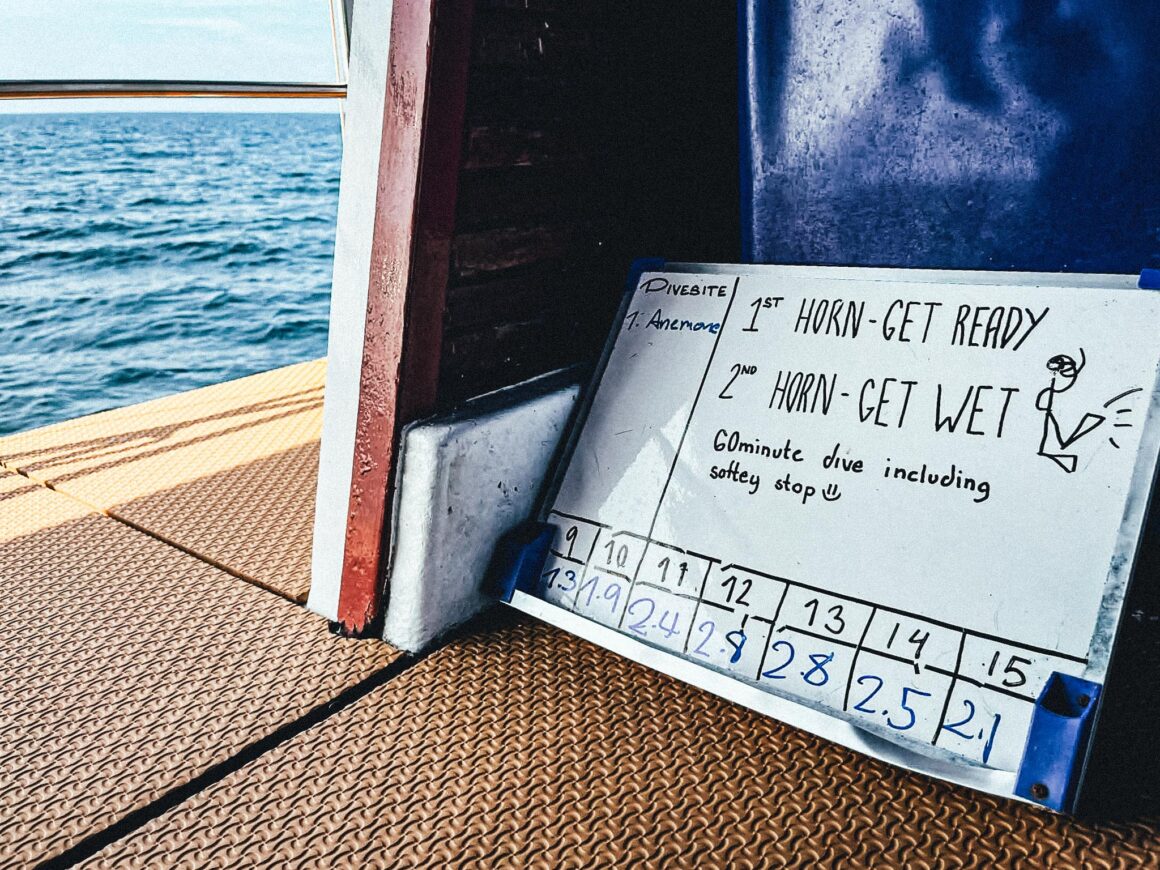 DIVESITE
1. Anemone
1ST HORN - GET READY
2ND HORN - GET WET
60minute dive including
saftey stop
9 10 11 12 13 14 15
1.3 1.9 2.4 2.8 2.8 2.5 2.1